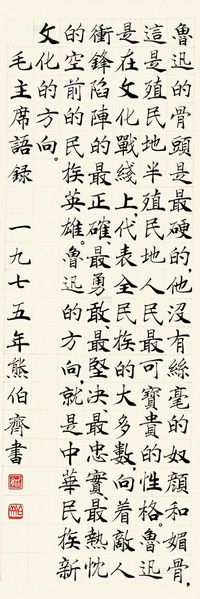 魯迅的骨頭是最硬的,他沒有絲毫的奴顏和媚骨,
這是殖民地半殖民地人民最可寶貴的性格。魯迅
是在文化戰綫上,代表全民族的大多數,向着敵人
衝鋒陷陣的最正確、最勇敢、最堅決、最忠實、最熱忱
的空前的民族英雄。魯迅的方向,就是中華民族新
文化的方向。
毛主席語録 一九七五年熊伯齊書